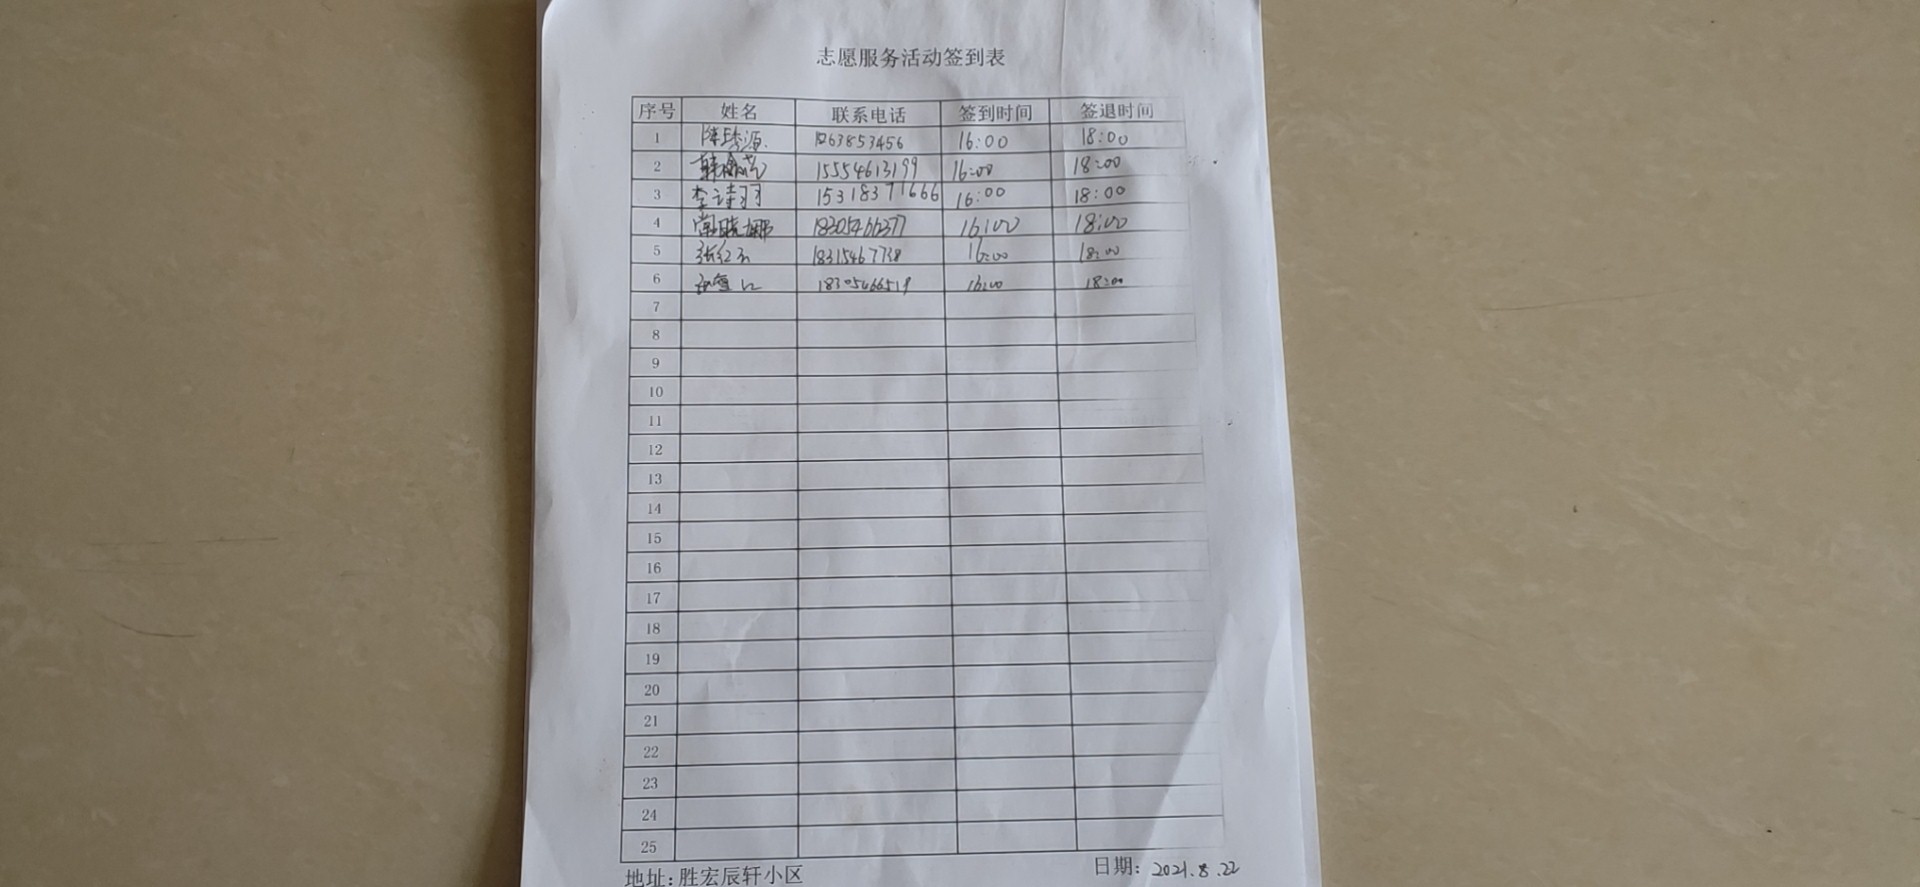 志愿服务活动签到表
序号 姓名 联系电话 签到时间 签退时间
1 16:00 18:00
2 15554613199 16:00 18:00
3 李诗羽 15318371666 16:00 18:00
4 常晓娜 18305466377 16:00 18:00
5 18315467738 16:00 18:00
6 18305466519 16:00 18:00
7
8
9
10
11
12
13
14
15
16
17
18
19
20
21
22
23
24
25
地址:胜宏辰轩小区 日期: 2021.8.22